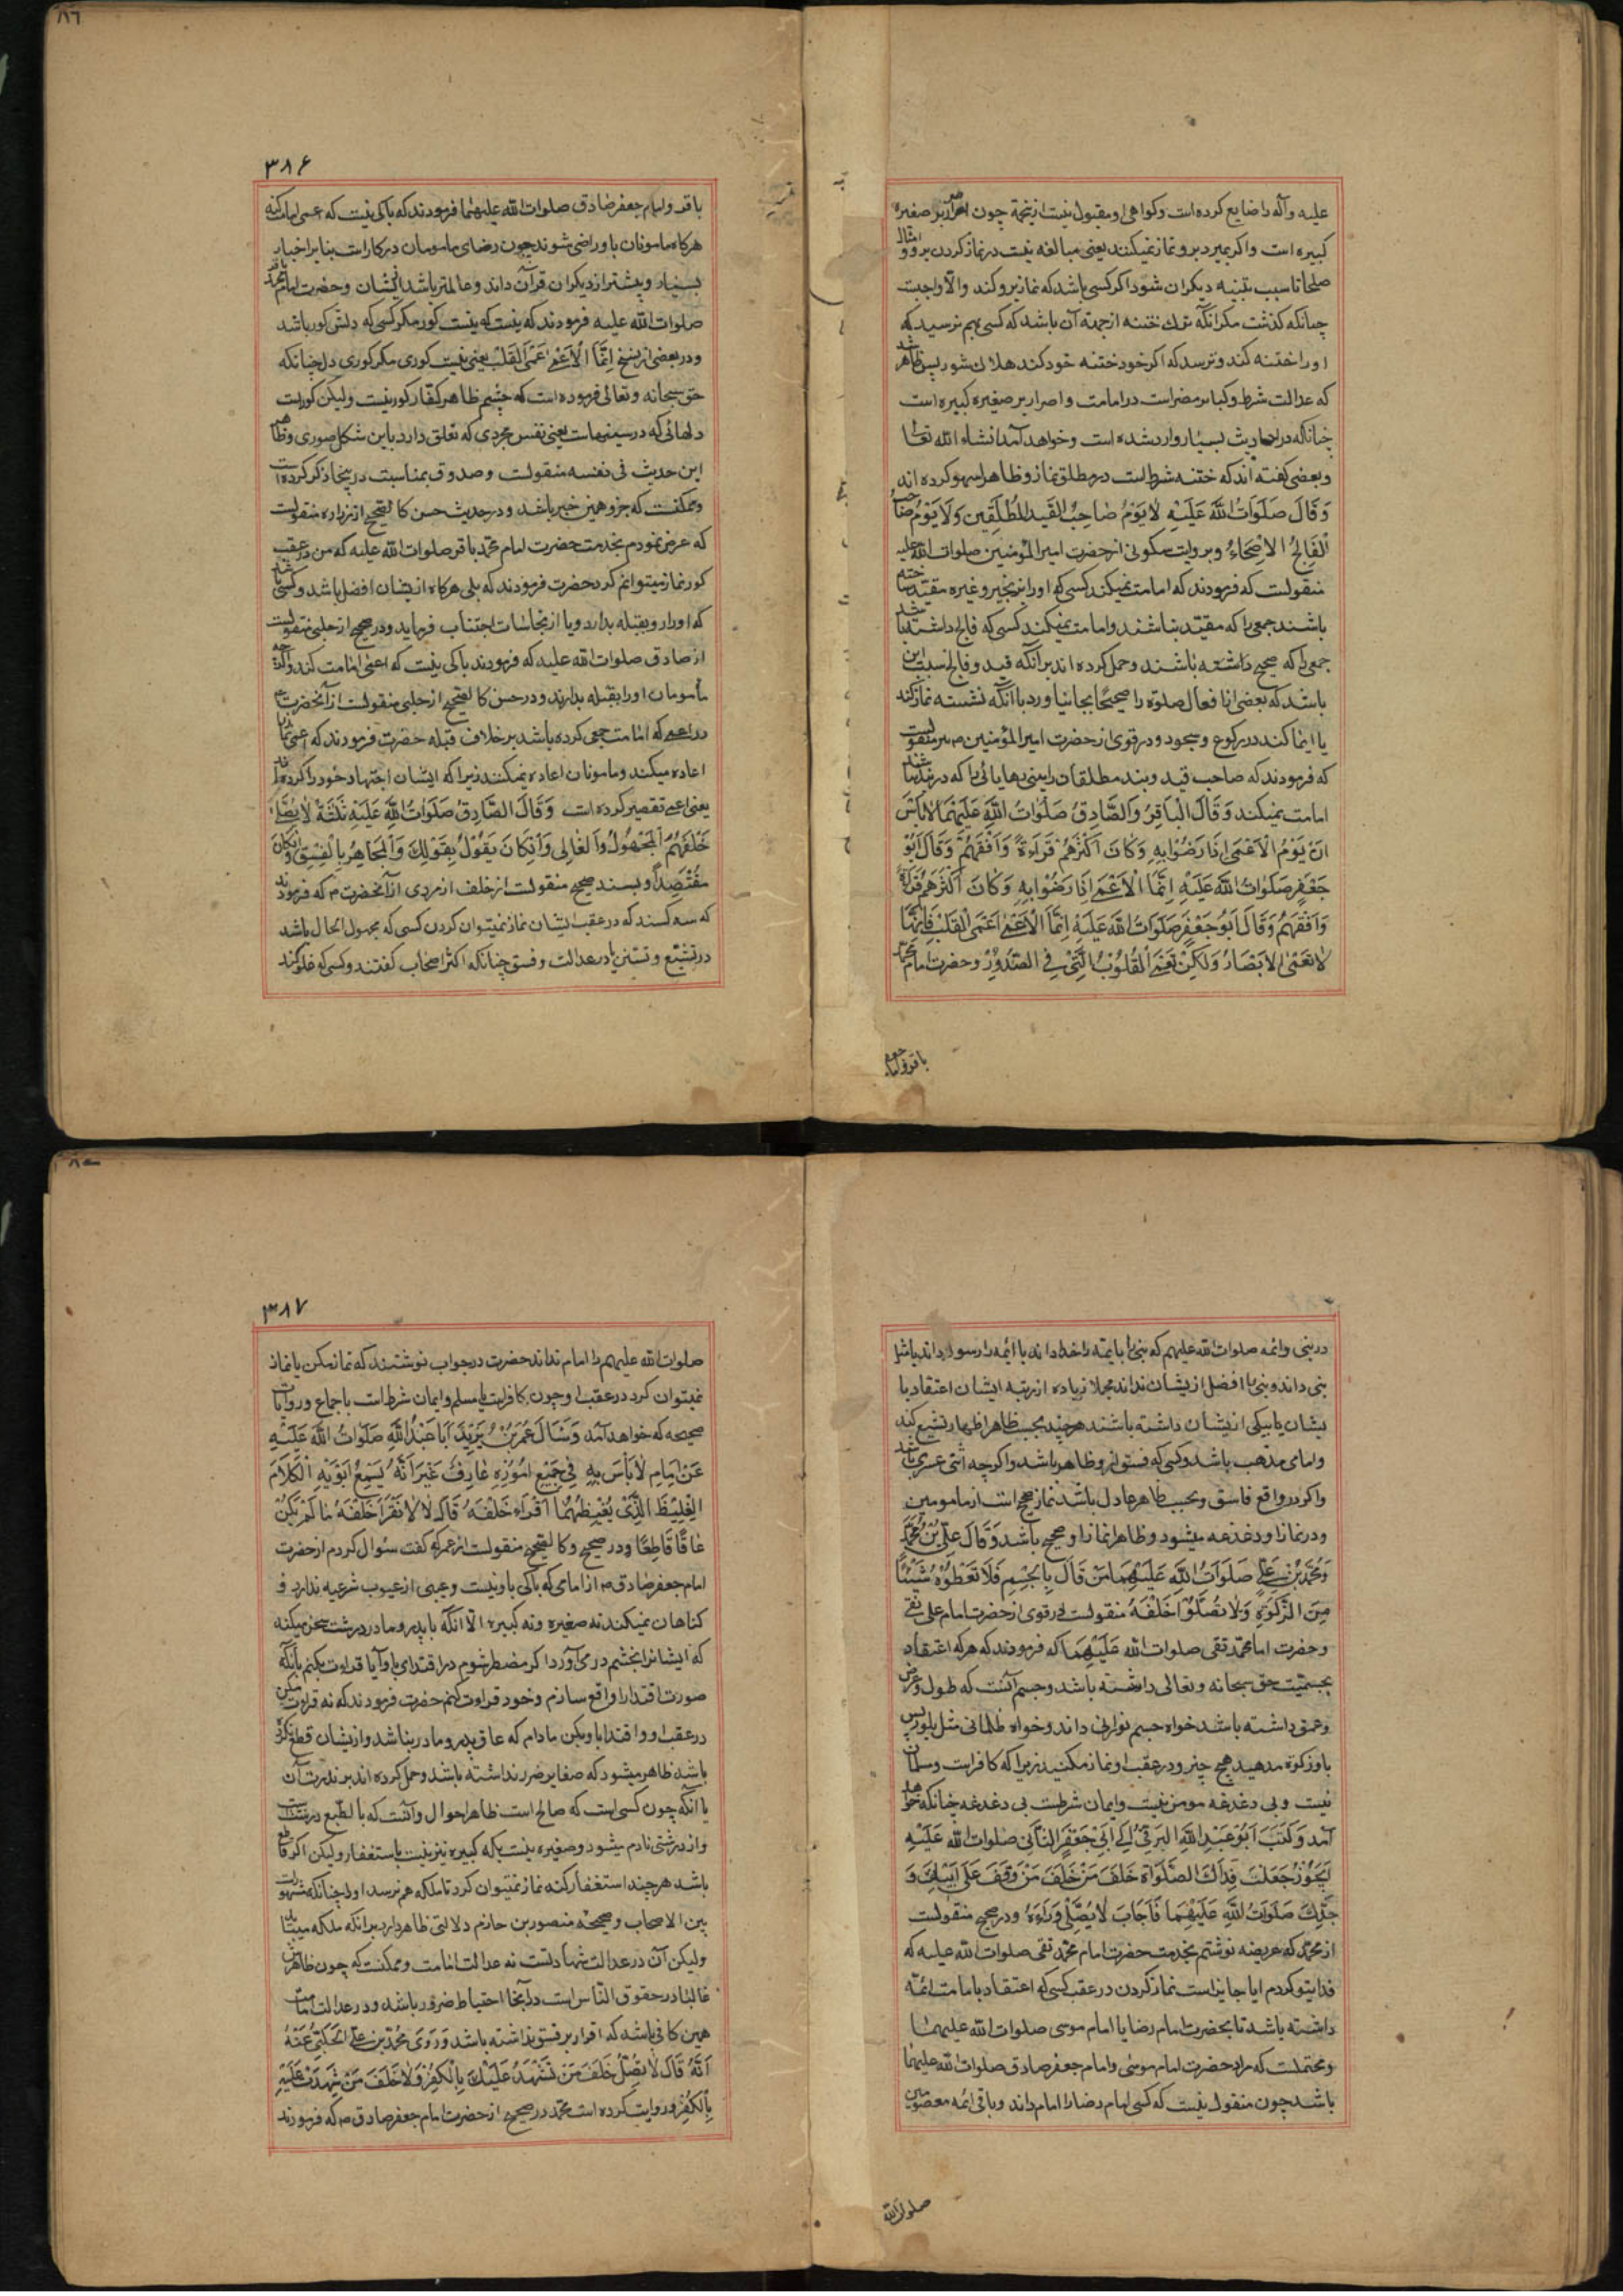 علیه وآله را ضایع کرده است وکواهی او مقبول نیست ازینجهة چون اصرار بر صغیره
کبیره است واکر بمیرد برو نماز نمیکنند یعنی مبالغه نیست در نماز کردن برو و امثال
صلحا تا سبب تنبیه دیکران شود اکر کسی باشد که نماز برو کند والّا واجبست
چنانکه کذشت مکر آنکه ترك ختنه از جهة آن باشد که کسی بهم نرسید که
او را ختنه کند وترسد که اکر خود ختنه خود کند هلاك شود پس ظاهر شد
که عدالت شرط وکبایر مضر است در امامت واصرار بر صغیره کبیره است
چنانکه در احادیث بسیار وارد شده است وخواهد آمد انشاء الله تعا
وبعضی کفته اند که ختنه شرط است در مطلق نماز وظاهرا سهو کرده اند
وَقَالَ صَلَوَاتُ اللَّهِ عَلَیْهِ لا یَؤُمُّ صَاحِبُ القَیدِ المُطلَقِینَ وَلَا یَؤُمُّ صَاحِبُ
الْفَالِجُ الاَصِحَّاءُ وبروایت سکونی از حضرت امیر المؤمنین صلوات الله علیه
منقولست که فرمودند که امامت نمیکند کسی که او را بزنجیر وغیره مقید ساخته
باشند جمعی را که مقیّد نباشند وامامت نمیکند کسی که فالج داشته باشد
جمعی را که صحیح داشته باشند وحمل کرده اند بر آنکه قید وفالج سبب این
باشد که بعضی از افعال صلوة را صحیحًا بجا نیاورد با آنکه نشسته نماز کند
یا ایما کند در رکوع وسجود ودر قوی از حضرت امیر المؤمنین م نیز منقولست
که فرمودند که صاحب قید وبند مطلقان را یعنی رهایانی را که در بند نباشند
امامت نمیکند وَقَالَ الْبَاقِرُ وَالصَّادِقُ صَلَوَاتُ اللَّهِ عَلَیْهِمَا لَا بَأسَ
اَنْ یَؤُمَّ الْاَعْمَی اِذَا رَضُوا بِهِ وَکَانَ اَکْثَرَهُمْ قَرَاءَةً وَاَفْقَهُمْ وَقَالَ اَبُوْ
جَعْفَرٍ صَلَوَاتُ اللَّهِ عَلَیْهِ اِنَّمَا الْاَعْمَی اِذَا رَضُوا بِهِ وَکَانَ اَکْثَرَهُمْ قَرَاءَةً
وَاَفْقَهُمْ وَقَالَ اَبُوجَعْفَرٍ صَلَوَاتُ اللَّهِ عَلَیْهِ اِنَّمَا الْاَعْمَی اَعْمَی الْقَلْبِ فَاِنَّهَا
لَا تَعْمَی الاَبْصَارُ وَلَکِنْ تَعْمَی الْقُلُوْبُ الَّتِیْ فِی الصُّدُوْرِ وحضرت امام محمد
باقر وامام جعفر
۳۸۶
باقر وامام جعفر صادق صلوات الله علیهما فرمودند که باکی نیست که اعمی امامت کند
هرکاه مامونان باو راضی شوند چون رضای مامومان در کار است بنا بر اخبار
بسیار وبیشتر از دیکران قرآن داند وعالمتر باشد از ایشان وحضرت امام محمد باقر
صلوات الله علیه فرمودند که نیست که نیست کور مکر کسی که دلش کور باشد
ودر بعضی از نسخ اِنَّمَا الْاَعْمَی عَمَی الْقَلْبِ یعنی نیست کوری مکر کوری دل چنانکه
حق سبحانه وتعالی فرموده است که چشم ظاهر کفّار کور نیست ولیکن کور است
دلهائی که در سینهاست یعنی نفس مجردی که تعلق دارد باین شکل صوری وظاهر
این حدیث فی نفسه منقولست وصدوق بمناسبت در اینجا ذکر کرده است
وممکنست که جزو همین خبر باشد ودر حدیث حسن کالصّحیح از زراره منقولست
که عرض نمودم بخدمت حضرت امام محمّد باقر صلوات الله علیه که من در عقب
کور نماز میتوانم کرد حضرت فرمودند که بلی هرکاه از ایشان افضل باشد وکسی باشد
که او را رو بقبله بدارد ویا از نجاسات اجتناب فرماید ودر صحیح از حلبی منقولست
از صادق صلوات الله علیه که فرمودند باکی نیست که اعمی امامت کند
مأمومان او را بقبله بدارند ودر حسن کالصّحیح از حلبی منقولست از آنحضرت م
در اعمی که امامت جمعی کرده باشد بر خلاف قبله حضرت فرمودند که اعمی نماز را
اعاده میکند ومامونان اعاده نمیکنند زیرا که ایشان اجتهاد خود را کرده اند
یعنی اعمی تقصیر کرده است وَقَالَ الصَّادِقُ صَلَوَاتُ اللَّهِ عَلَیْهِ ثَلَثَةٌ لَا یُصَلَّی
خَلْفَهُمْ الْمَجْهُوْلُ وَالْغَالِی وَاِنْ کَانَ یَقُوْلُ بِقَوْلِكَ وَالْمُجَاهِرُ بِالْفِسْقِ وَاِنْ کَانَ
مُقْتَصِدًا وبسند صحیح منقولست از خلف از مردی از آنحضرت م که فرمودند
که سه کسند که در عقب ایشان نماز نمیتوان کردن کسی که مجهول الحال باشد
در تشیّع وتسنّن یا در عدالت وفسق چنانکه اکثر اصحاب کفتند وکسی که غلو کند
در نبی وائمه صلوات الله علیهم که نبی را یا ائمه را خدا داند یا ائمه را رسول داند یا مثل
نبی داند ونبی را افضل از یشان نداند مجملا زیاده از رتبه ایشان اعتقاد با
یشان یا بیکی از یشان داشته باشند هرچند بحسب ظاهر اظهار تشیع کند
وامامی مذهب باشد وکسی که فسق او ظاهر باشد واکرچه اثنی عشری باشد
واکر در واقع فاسق وبحسب ظاهر عادل باشد نماز صحیح است از مامومین
ودر نماز او دغدغه میشود وظاهرا نماز او صحیح باشد وَقَالَ عَلِیُّ بْنُ مُحَمَّدٍ
وَمُحَمَّدُ بْنُ عَلِیٍّ صَلَوَاتُ اللَّهِ عَلَیْهِمَا مَنْ قَالَ بِالْجِسْمِ فَلَا تُعْطُوْهُ شَیْئًا
مِنَ الزَّکَوةِ وَلَا تُصَلُّوْا خَلْفَهُ منقولست در قوی از حضرت امام علی نقی
وحضرت امام محمّد تقی صلوات الله عَلَیْهِمَا که فرمودند که هرکه اعتقاد
بجسمیّت حق سبحانه وتعالی داشته باشد وجسم آنست که طول وعرض
وعمق داشته باشد خواه جسم نورانی داند وخواه ظلمانی مثل بلور پس
باو زکوة مدهید هیچ چیز ودر عقب او نماز مکنید زیرا که کافر است ومسلمان
نیست وبی دغدغه مومن نیست وایمان شرط است بی دغدغه چنانکه خواهد
آمد وَکَتَبَ اَبُوْ عَبْدِ اللَّهِ البَرقِیُّ اِلَی اَبِیْ جَعْفَرٍ الثَّانِی صلوات الله عَلَیْهِ
اَیَجُوْزُ جُعِلْتُ فِدَاكَ الصَّلَوَاةُ خَلْفَ مَنْ خَلْفَ مَنْ وَقَفَ عَلَی اَبِیْكَ وَ
جَدِّكَ صَلَوَاتُ اللَّهِ عَلَیْهِمَا فَاَجَابَ لَا یُصَلِّیْ وَرَاءَهُ ودر صحیح منقولست
از محمّد که عریضه نوشتم بخدمت حضرت امام محمّد تقی صلوات الله علیه که
فدایتو کردم ایا جایز است نماز کردن در عقب کسی که اعتقاد بامامت ائمّه
داشته باشد تا بحضرت امام رضا یا امام موسی صلوات الله علیهما
ومحتملست که مراد حضرت امام موسی وامام جعفر صادق صلوات الله علیهما
باشد چون منقول نیست که کسی امام رضا را امام داند وباقی ائمه معصومین
صلوات الله
۳۸۷
صلوات الله علیهم را امام نداند حضرت در جواب نوشتند که نماز مکن یا نماز
نمیتوان کرد در عقب او چون کافر است یا مسلم وایمان شرط است باجماع وروایات
صحیحه که خواهد آمد وَسَأَلَ عُمَرُ بْنُ یَزِیْدَ اَبَا عَبْدِ اللَّهِ صَلَوَاتُ اللَّهِ عَلَیْهِ
عَنْ اِمَامٍ لَا بَأسَ بِهِ فِیْ جَمِیْعِ اُمُوْرِهِ عَارِفٌ غَیْرَ اَنَّهُ یُسْمِعُ اَبَوَیْهِ الْکَلَامَ
الْغَلِیْظَ الَّذِیْ یُغِیْظُهُمَا اَقْرَاءُ خَلْفَهُ قَالَ لَا لَا تَقْرَأ خَلْفَهُ مَا لَمْ یَکُنْ
عَاقًّا قَاطِعًا ودر صحیح وکالصّحیح منقولست از عمر که کفت سئوال کردم از حضرت
امام جعفر صادق م از امامی که باکی باو نیست وعیبی از عیوب شرعیه ندارد و
کناهان نمیکند نه صغیره ونه کبیره الّا آنکه با پدر ومادر درشت سخن میکند
که ایشانرا بخشم در می آورد اکر مضطر شوم در اقتدای باو آیا قراءت بکنم با آنکه
صورت اقتدا را واقع سازم وخود قراءت کنم حضرت فرمودند که نه قراءت مکن
در عقب او واقتدا باو بکن مادام که عاق پدر ومادر نباشد واز یشان قطع نکرده
باشد ظاهر میشود که صغایر ضرر نداشته باشد وحمل کرده اند بر ندرت آن
یا آنکه چون کسی است که صالح است ظاهر احوال و آنست که بالطّبع
واز درشتی نادم میشود وصغیره نیست بلکه کبیره نیز نیست باستغفار ولیکن اکر قاطع
باشد هرچند استغفار کند نماز نمیتوان کرد تا ملکه هم نرسد او را چنانکه مشهور است
بین الاصحاب وصحیحه منصور بن حازم دلالتی ظاهر دارد بر آنکه ملکه میباید
ولیکن آن در عدالت شهادتست نه عدالت امامت وممکنست که چون ظاهرش
غالبا در حقوق النّاس است در آنجا احتیاط ضرور باشد ودر عدالت امامت
همین کافی باشد که اقرار بر فسق نداشته باشد وَرَوَی مُحَمَّدُ بْنُ عَلِیٍّ الْحَلَبِیُّ عَنْهُ
اَنَّهُ قَالَ لَا تُصَلِّ خَلْفَ مَنْ تَشْهَدُ عَلَیْكَ بِالْکُفْرِ وَلَا خَلْفَ مَنْ شَهِدْتَ عَلَیْهِ
بِالْکُفْرِ وروایت کرده است محمّد در صحیح از حضرت امام جعفر صادق م که فرمودند